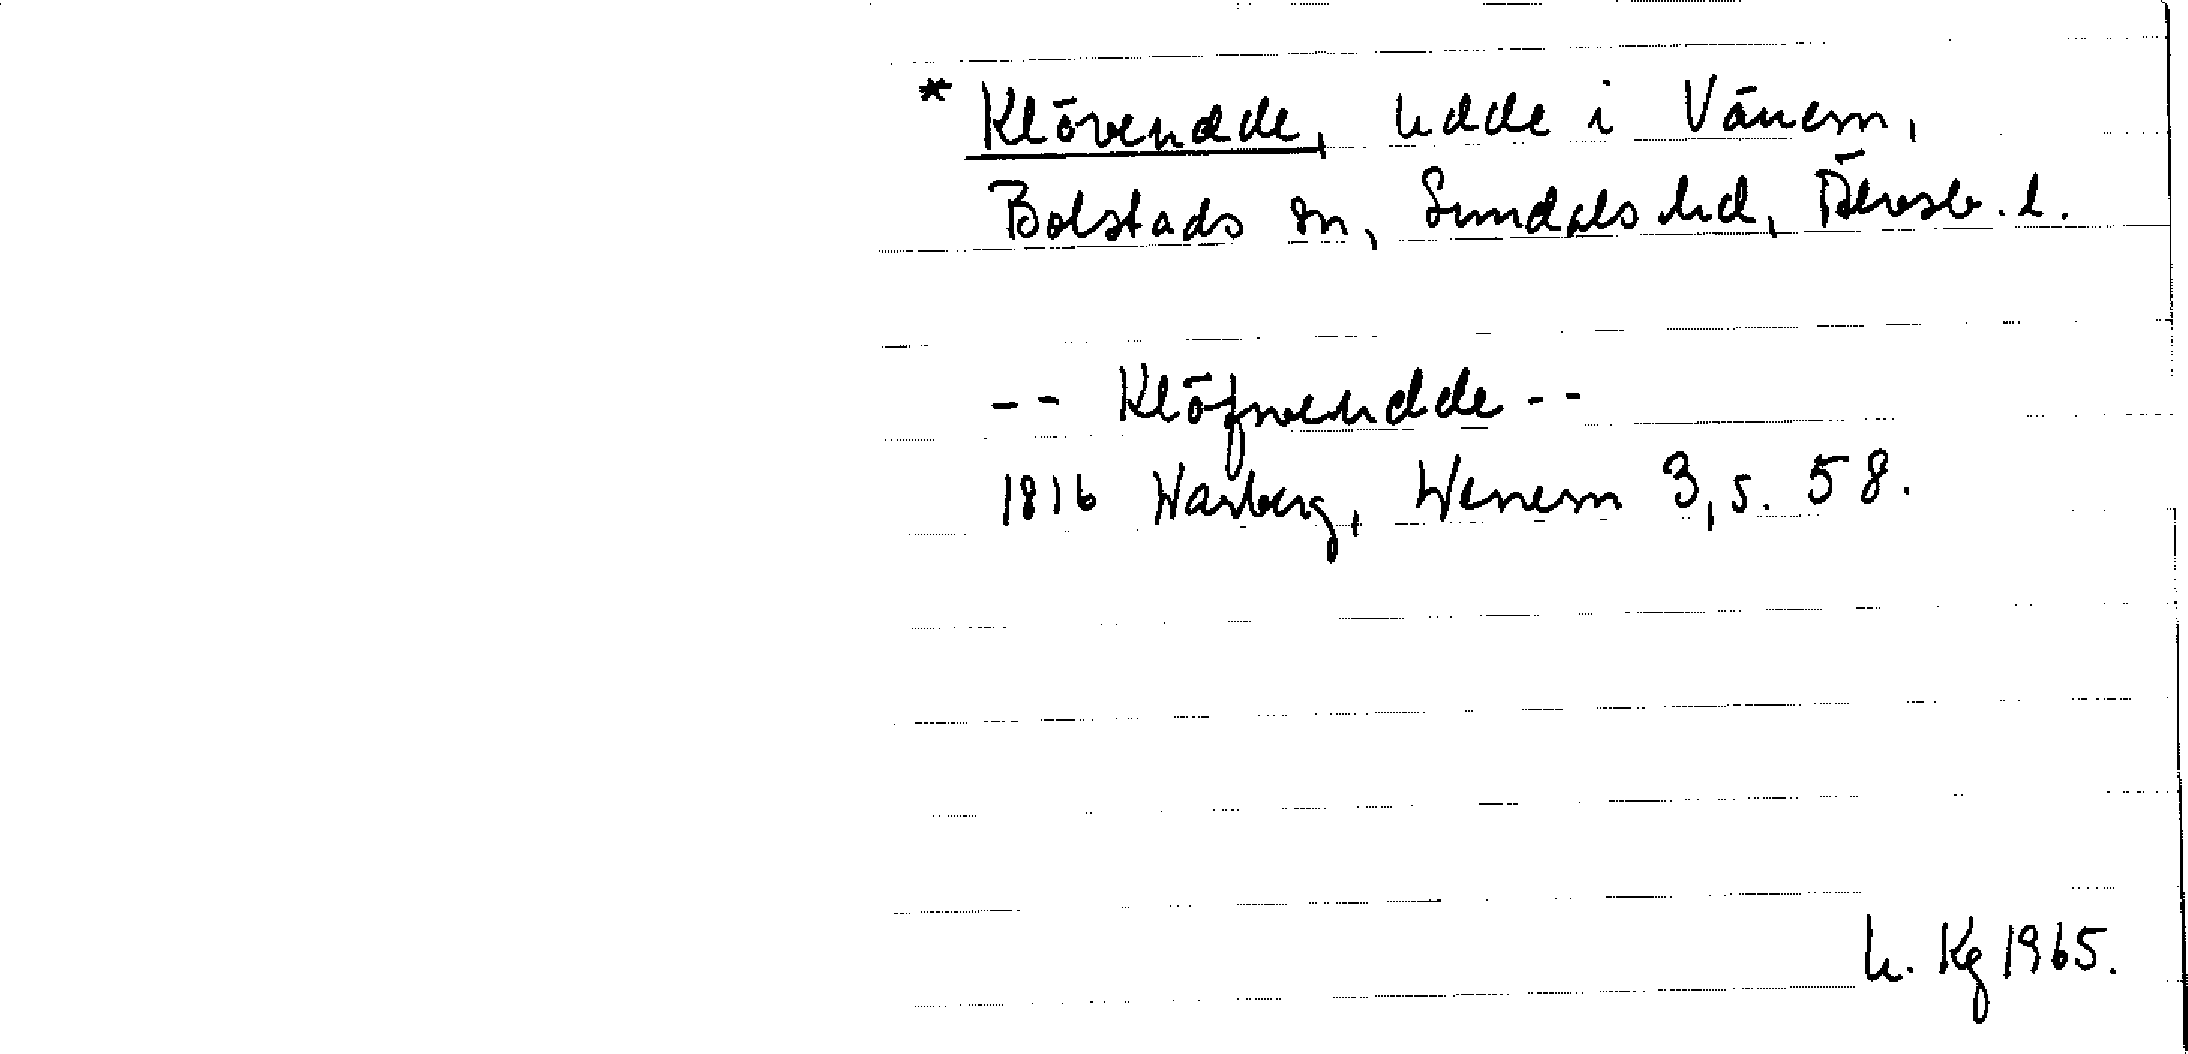 * Klövendde, Udde i Vänern,
Bolstads sn, Sundals hd, Älvsb. l.
-- Klöfwendde --
1816 Warberg, Wenern 3, s. 58.
U. Kg 1965.